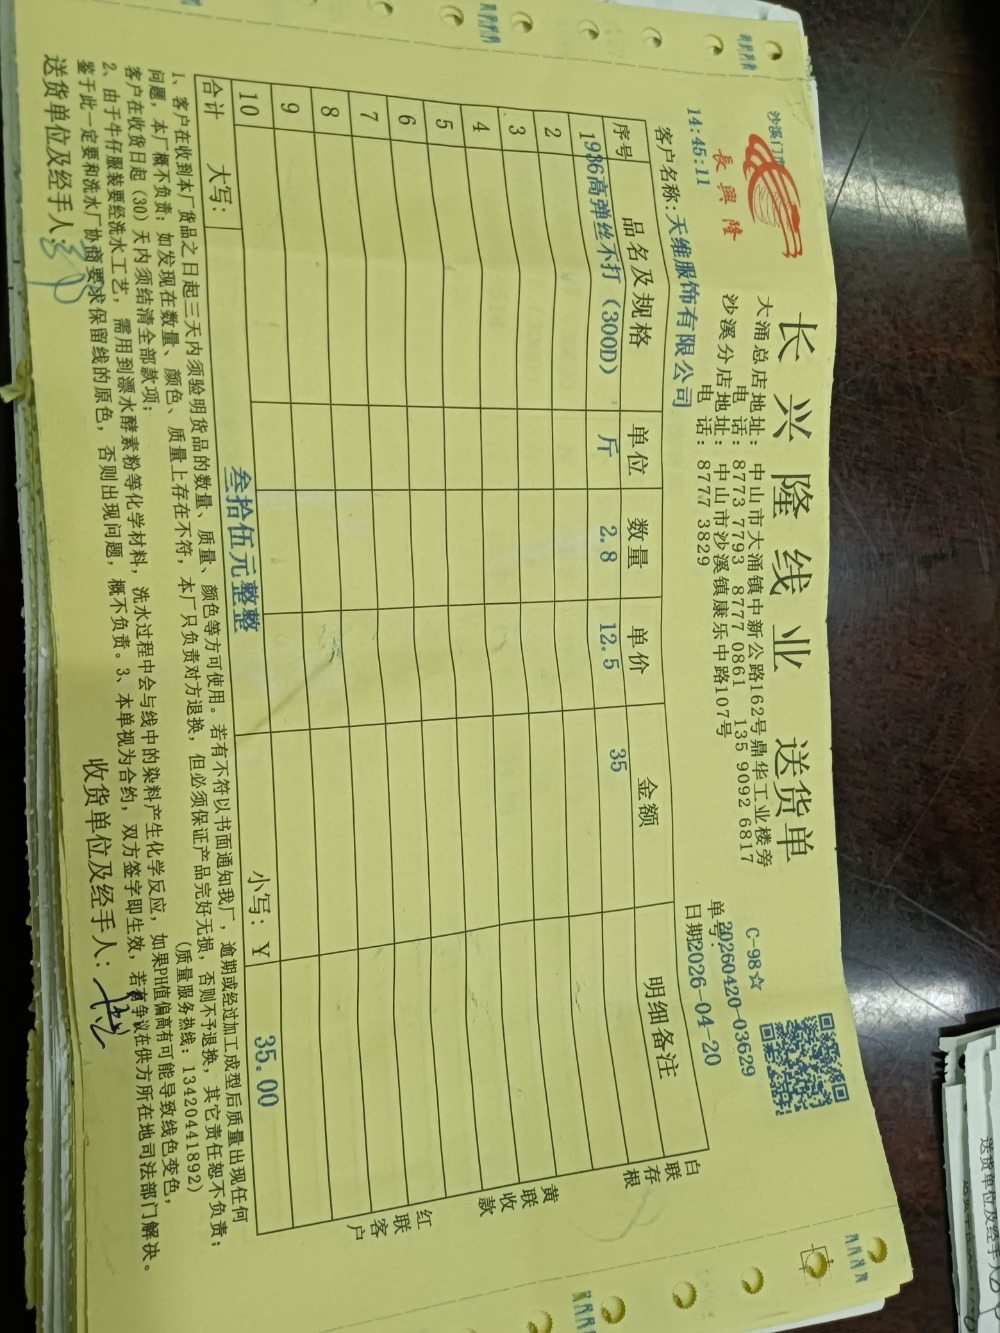 沙溪门市
長興隆
长兴隆线业 送货单
大涌总店地址: 中山市大涌镇中新公路162号鼎华工业楼旁
电 话: 8773 7793 8777 0861 135 9092 6817
沙溪分店地址: 中山市沙溪镇康乐中路107号
电 话: 8777 3829
C-98☆
单号: 20260420-03629
日期2026-04-20
14:45:11
客户名称: 天维服饰有限公司
序号 品名及规格 单位 数量 单价 金额 明细备注
1 936高弹丝不打（300D） 斤 2.8 12.5 35
2
3
4
5
6
7
8
9
10
合计 大写: 叁拾伍元整整 小写: ¥ 35.00
白联存根
黄联收款
红联客户
1、客户在收到本厂货品之日起三天内须验明货品的数量、质量、颜色等方可使用。若有不符以书面通知我厂，逾期或经过加工成型后质量出现任何
问题，本厂概不负责；如发现在数量、颜色、质量上存在不符，本厂只负责对方退换，但必须保证产品完好无损，否则不予退换，其它责任恕不负责；
客户在收货日起（30）天内须结清全部款项； (质量服务热线: 13420441892)
2、由于牛仔服装要经洗水工艺，需用到漂水酵素粉等化学材料，洗水过程中会与线中的染料产生化学反应，如果PH值偏高有可能导致线色变色，
鉴于此一定要和洗水厂协商要求保留线的原色，否则出现问题，概不负责。3、本单视为合约，双方签字即生效，若有争议在供方所在地司法部门解决。
送货单位及经手人: 收货单位及经手人:
送货单位及经手人